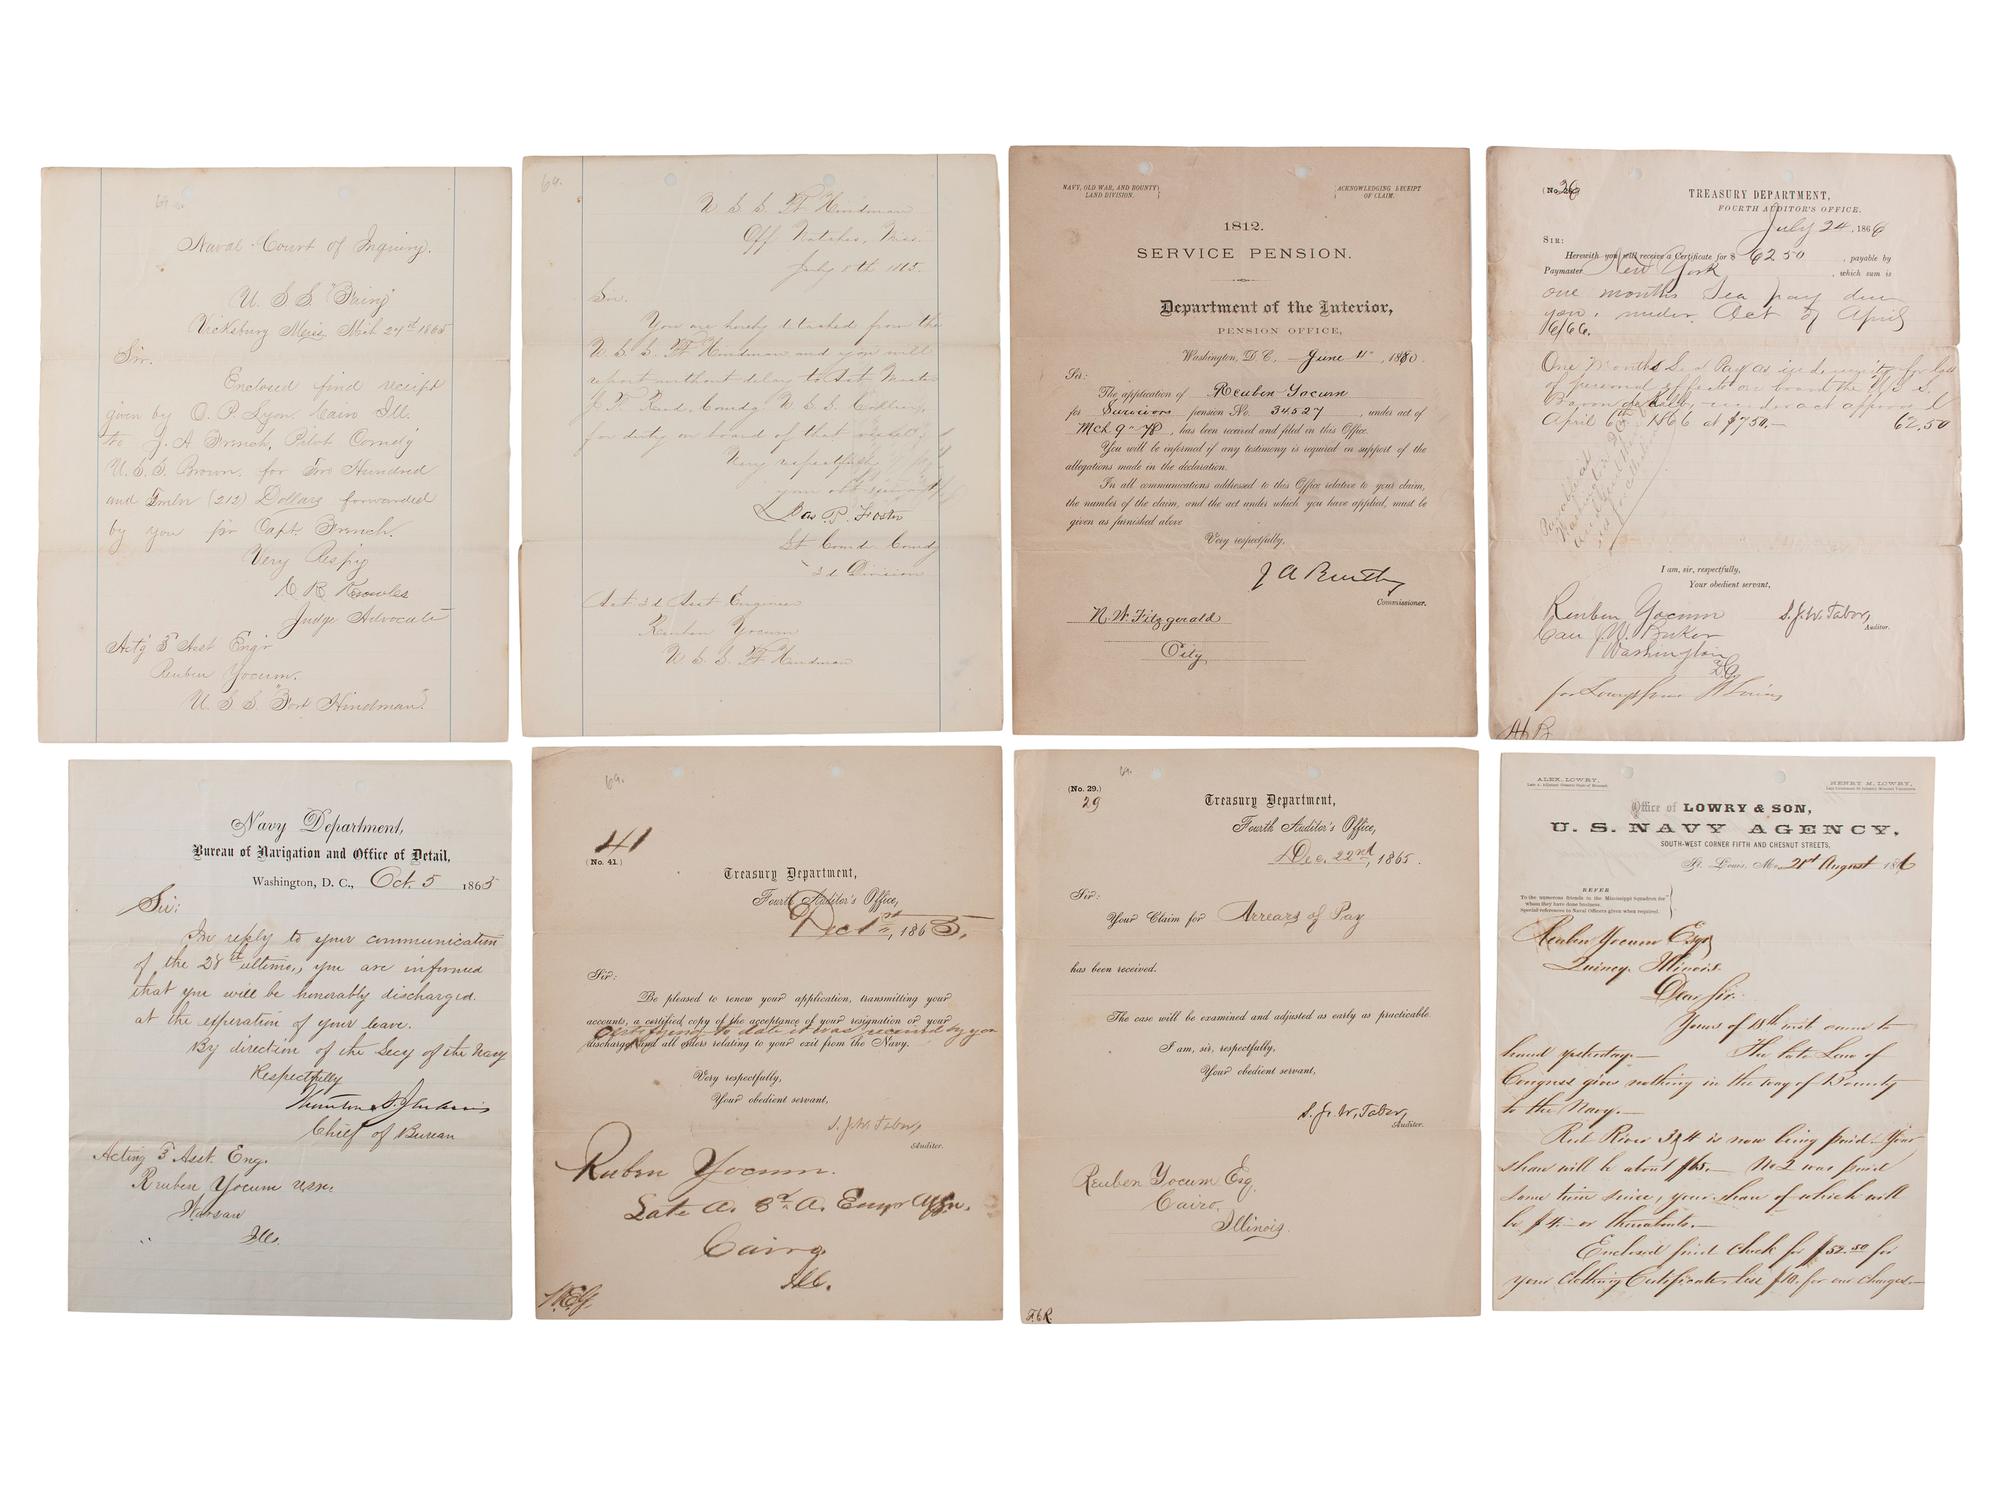 Naval Court of Inquiry.
Vicksburg Miss. Mch 24th 1865
Sir.
Enclosed find receipt
given by O. P. Lyon. Cairo Ill.
to J. A French, Pilot Comdg
U.S.S. Brown. for Two Hundred
and Twelve (212) Dollars forwarded
by you for Capt. French.
Very Respy
Knowles
Judge Advocate
Actg 3d Asst Engr
Reuben Yocum.
U. S. S "Fort Hindman."
64.
U. S. S. Ft Hindman
Off Natchez, Miss.
July 8th 1865.
Sir.
You are hereby detached from the
U. S. S. Ft Hindman and you will
report without delay to Act. Master
Comdg U. S. S.
for duty on board of that vessel.
Very respectfully
your obt servant
Jas P. Foster
Lt Comdr Comdg
3d Division
Act. 3d Asst Engineer
Reuben Yocum
U. S. S. Ft Hindman
NAVY, OLD WAR, AND BOUNTY
LAND DIVISION.
ACKNOWLEDGING RECEIPT
OF CLAIM.
1812.
SERVICE PENSION.
Department of the Interior,
PENSION OFFICE,
Washington, D. C., June 11", 1880.
Sir:
The application of Reuben Yocum
for Survivors pension No. 34527, under act of
Mch 9" 78, has been received and filed in this Office.
You will be informed if any testimony is required in support of the
allegations made in the declaration.
In all communications addressed to this Office relative to your claim,
the number of the claim, and the act under which you have applied, must be
given as furnished above
Very respectfully,
J A Bentley
Commissioner.
N. W. Fitzgerald
City
TREASURY DEPARTMENT,
FOURTH AUDITOR'S OFFICE.
July 24, 1866
SIR:
Herewith you will receive a Certificate for $ 62 50, payable by
Paymaster New York, which sum is
one months Sea pay due
you, under Act of April
6/66.
One Months Sea Pay as indemnity for loss
of personal effects on board the U. S. S.
Baron de Kalb, under act approved
April 6th 1866 at $750.— 62.50
I am, sir, respectfully,
Your obedient servant,
Reuben Yocum S. J. W. Tabor,
Auditor.
Care
Washington
D.C.
Navy Department,
Bureau of Navigation and Office of Detail,
Washington, D. C., Oct. 5 1865
Sir:
In reply to your communication
of the 28th ultimo, you are informed
that you will be honorably discharged
at the experation of your leave.
By direction of the Secy of the Navy
Respectfully
Chief of Bureau
Acting 3d Asst. Eng.
Reuben Yocum USN.
Warsaw
Ills.
69.
41
(No. 41.)
Treasury Department,
Fourth Auditor's Office,
Dec 1st, 1865.
Sir:
Be pleased to renew your application, transmitting your
accounts, a certified copy of the acceptance of your resignation or your
Certifying to date it was received by you
discharge, and all orders relating to your exit from the Navy.
Very respectfully,
Your obedient servant,
S. J. W. Tabor,
Auditor.
Reuben Yocum.
Late A. 3d A. Engr USN.
Cairo,
Ill.
64.
(No. 29.)
29
Treasury Department,
Fourth Auditor's Office,
Dec. 22nd, 1865.
Sir:
Your Claim for Arrears of Pay
has been received.
The case will be examined and adjusted as early as practicable.
I am, sir, respectfully,
Your obedient servant,
S. J. W. Tabor,
Auditor.
Reuben Yocum Esq.
Cairo,
Illinois.
ALEX. LOWRY,
HENRY M. LOWRY,
Office of LOWRY & SON,
U. S. NAVY AGENCY,
SOUTH-WEST CORNER FIFTH AND CHESNUT STREETS,
St. Louis, Mo. 21st August 186
REFER
To the numerous friends in the Mississippi Squadron for
whom they have done business.
Special references to Naval Officers given when required.
Reuben Yocum Esqr
Quincy. Illinois
Dear Sir:
Yours of 18th inst came to
hand yesterday.— The late Law of
Congress give nothing in the way of Bounty
to the Navy.—
Red River 3 & 4 is now being paid. Your
share will be about $65.— No 2 was paid
some time since, your share of which will
be $4.— or thereabouts.—
Enclosed find check for $52.50 for
your Clothing Certificate, less $10. for our charges.—